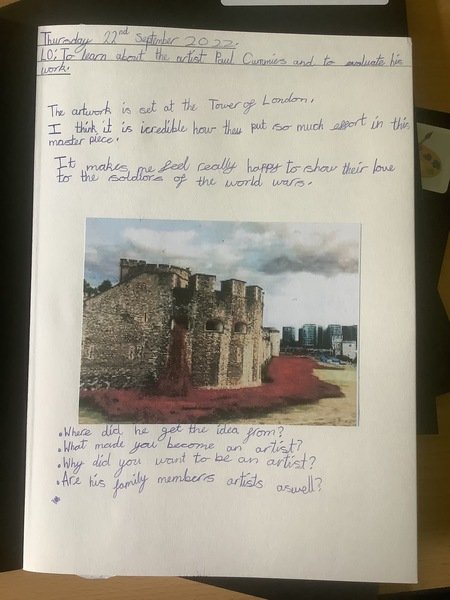 Thursday 22nd September 2022.
LO: To learn about the artist Paul Cummins and to evaluate his
work.
The artwork is set at the Tower of London.
I think it is icredible how they put so much effort in this
master piece.
It makes me feel really happy to show their love
to the soldiors of the world wars.
•Where did he get the idea from?
•What made you become an artist?
•Why did you want to be an artist?
•Are his family members artists aswell?